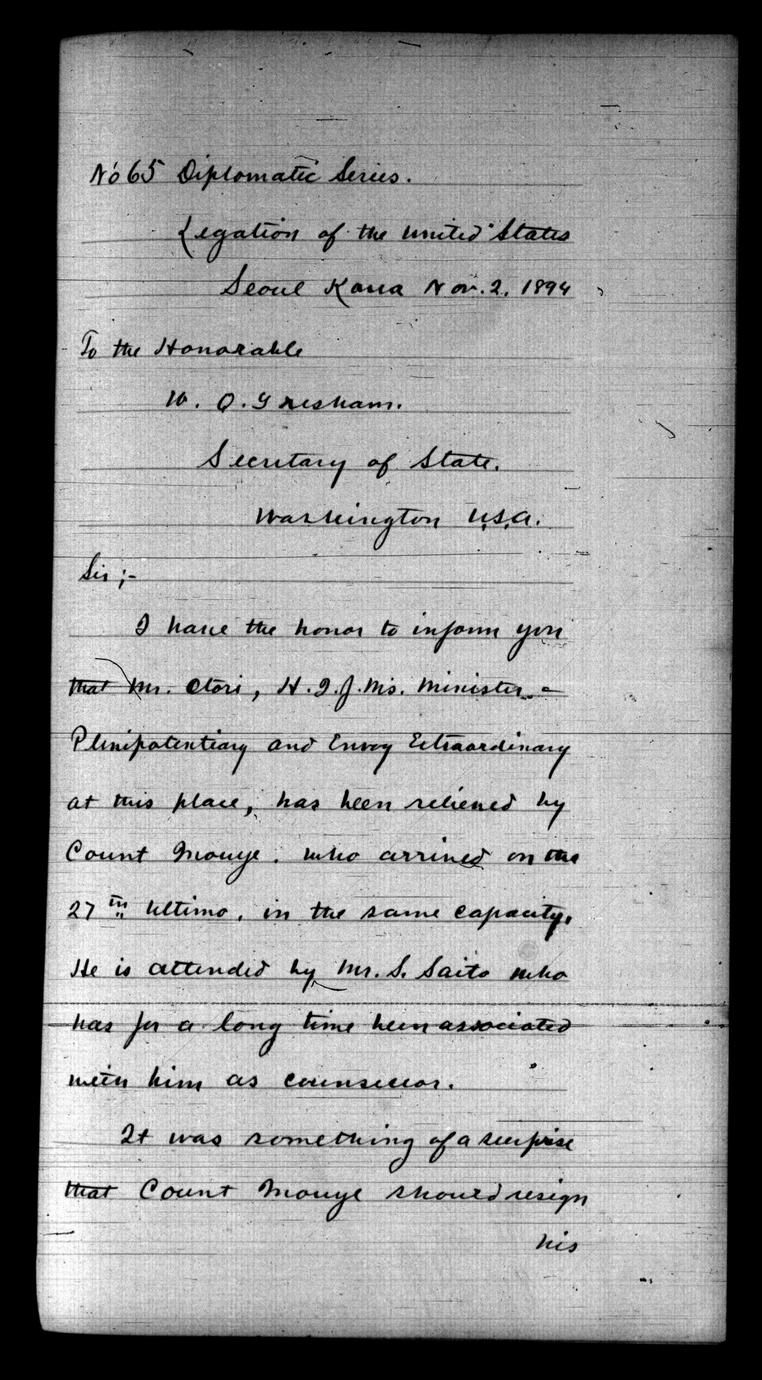 No 65 Diplomatic Series.
Legation of the United States
Seoul Korea Nov. 2, 1894
To the Honorable
W. Q. Gresham.
Secretary of State.
Washington U.S.A.
Sir;-
I have the honor to inform you
that Mr. Otori, H.I.J.M's. Minister -
Plenipotentiary and Envoy Extraordinary
at this place, has been relieved by
Count Inouye. who arrived on the
27th Ultimo, in the same capacity.
He is attended by Mr. S. Saito who
has for a long time been associated
with him as counsellor.
It was something of a surprise
that Count Inouye should resign
his